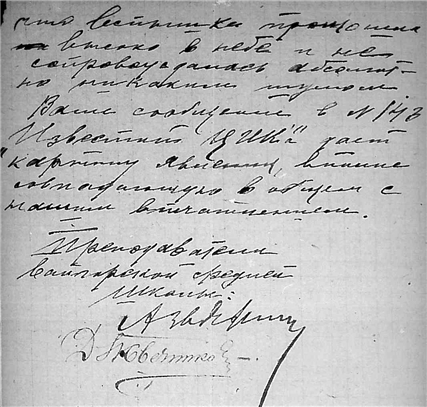 что вспышка произошла
высоко в небе и не
сопровождалась абсолют-
но никаким шумом
Ваше сообщение в N 143
"Известий ЦИК" дает
картину явления, вполне
совпадающую в общем с
нашим впечатлением.
Преподаватели
средней
школы: